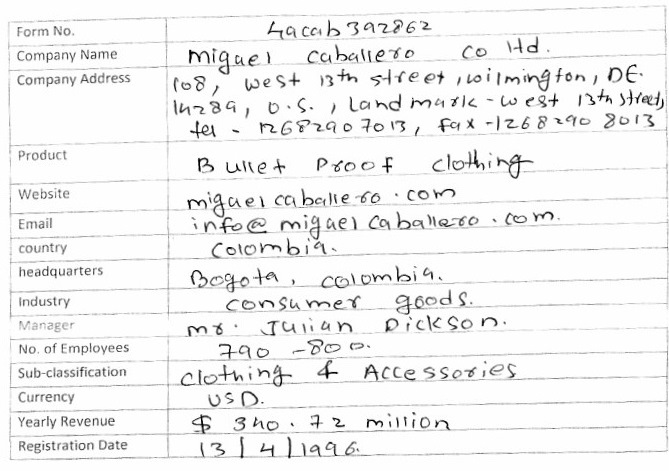 Form No. 4acab392862
Company Name miguel caballero co ltd.
Company Address 108, west 13th street, wilmington, DE.
14289, U.S., Landmark - west 13th street,
tel - 12682907013, fax -1268290 8013
Product Bullet Proof clothing
Website miguelcaballero.com
Email info@miguelcaballero.com.
country Colombia.
headquarters Bogota, colombia.
Industry consumer goods.
Manager mr. Julian Dickson.
No. of Employees 790 - 800.
Sub-classification clothing & Accessories
Currency USD.
Yearly Revenue $ 340.72 million
Registration Date 13/4/1996.